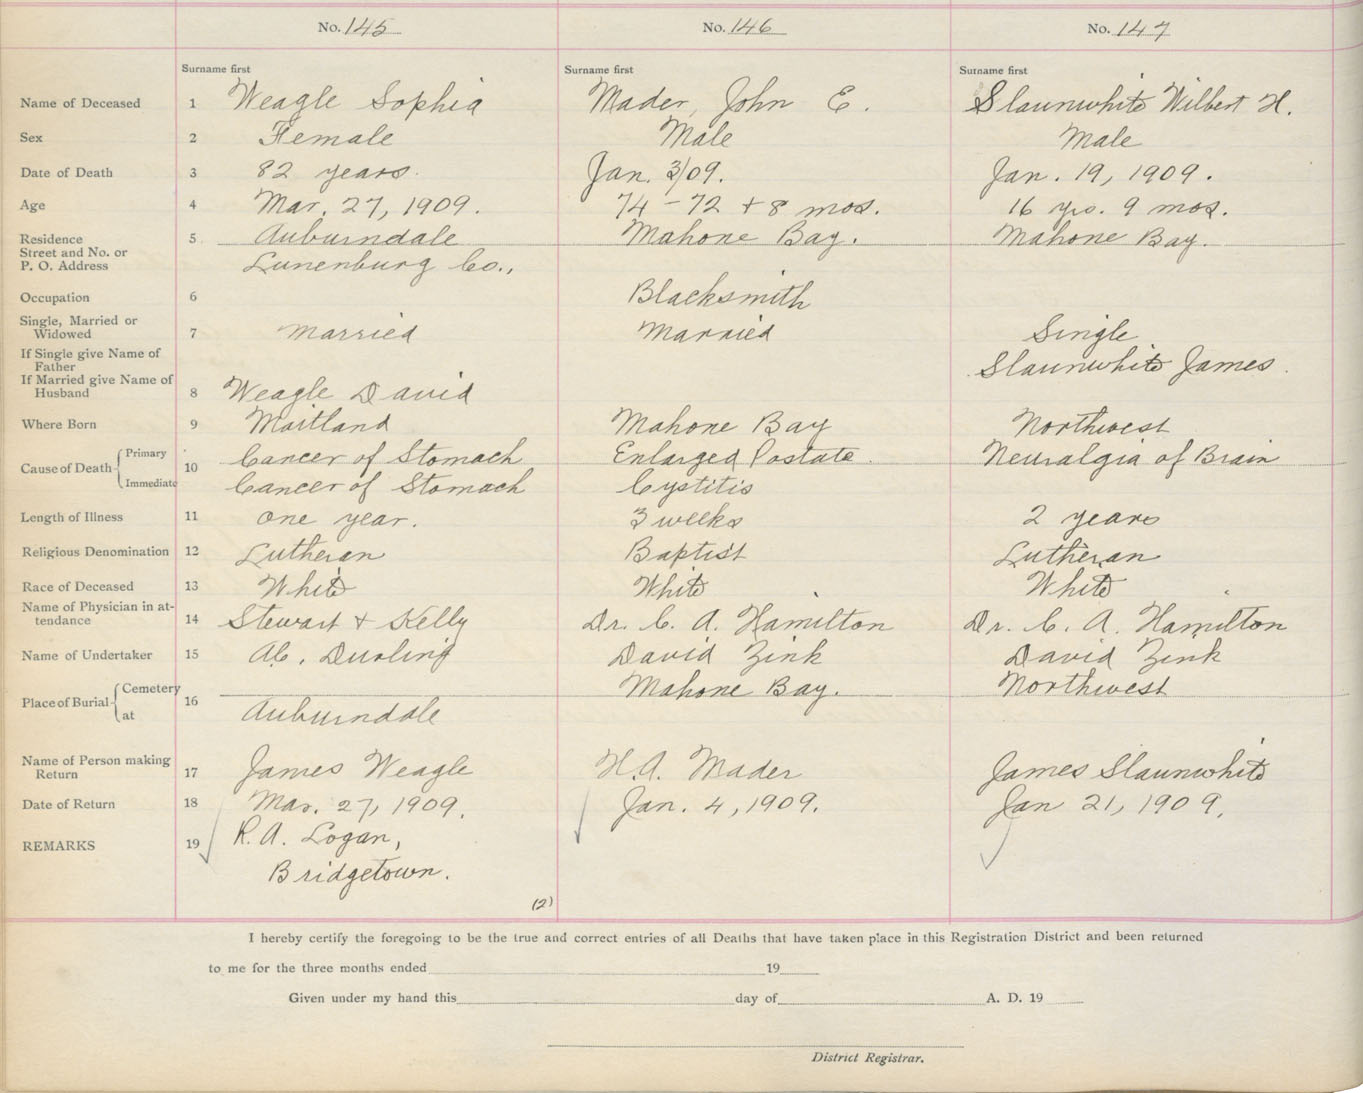 No. 145 No. 146 No. 147
Surname first Surname first Surname first
Name of Deceased 1 Weagle Sophia Mader, John E. Slaunwhite Wilbert H.
Sex 2 Female Male Male
Date of Death 3 82 years. Jan. 3/09. Jan. 19, 1909.
Age 4 Mar. 27, 1909. 74 - 72 + 8 mos. 16 yrs. 9 mos.
Residence 5 Auburndale Mahone Bay. Mahone Bay.
Street and No. or
P. O. Address Lunenburg Co.,
Occupation 6 Blacksmith
Single, Married or
Widowed 7 Married Married Single
If Single give Name of
Father Slaunwhite James.
If Married give Name of
Husband 8 Weagle David
Where Born 9 Maitland Mahone Bay Northwest
Cause of Death Primary 10 Cancer of Stomach Enlarged Postate. Neuralgia of Brain
Immediate Cancer of Stomach Cystitis
Length of Illness 11 one year. 3 weeks 2 years
Religious Denomination 12 Lutheran Baptist Lutheran
Race of Deceased 13 White White White
Name of Physician in at-
tendance 14 Stewart + Kelly Dr. C. A. Hamilton Dr. C. A. Hamilton
Name of Undertaker 15 A.C. Durling David Zink David Zink
Place of Burial Cemetery 16 Mahone Bay. Northwest
at Auburndale
Name of Person making
Return 17 James Weagle H.A. Mader James Slaunwhite
Date of Return 18 Mar. 27, 1909. Jan. 4, 1909. Jan 21, 1909.
REMARKS 19 R. A. Logan,
Bridgetown.
(2)
I hereby certify the foregoing to be the true and correct entries of all Deaths that have taken place in this Registration District and been returned
to me for the three months ended 19
Given under my hand this day of A. D. 19
District Registrar.